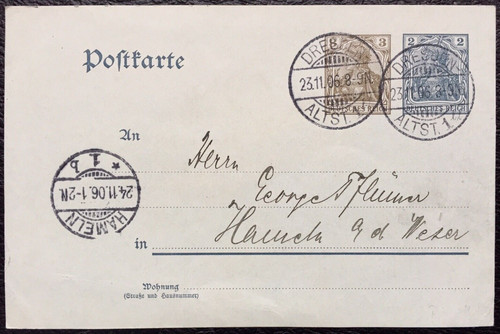 Postkarte
3
2
DEUTSCHES REICH
DEUTSCHES REICH
DRESDEN
23.11.06.8-9N.
ALTST. 1
DRESDEN
23.11.06.8-9N.
ALTST. 1
An
Herrn
George Pflümer
HAMELN
24.11.06.1-2N.
* 1 b
in Hameln a/d Weser
Wohnung
(Straße und Hausnummer)